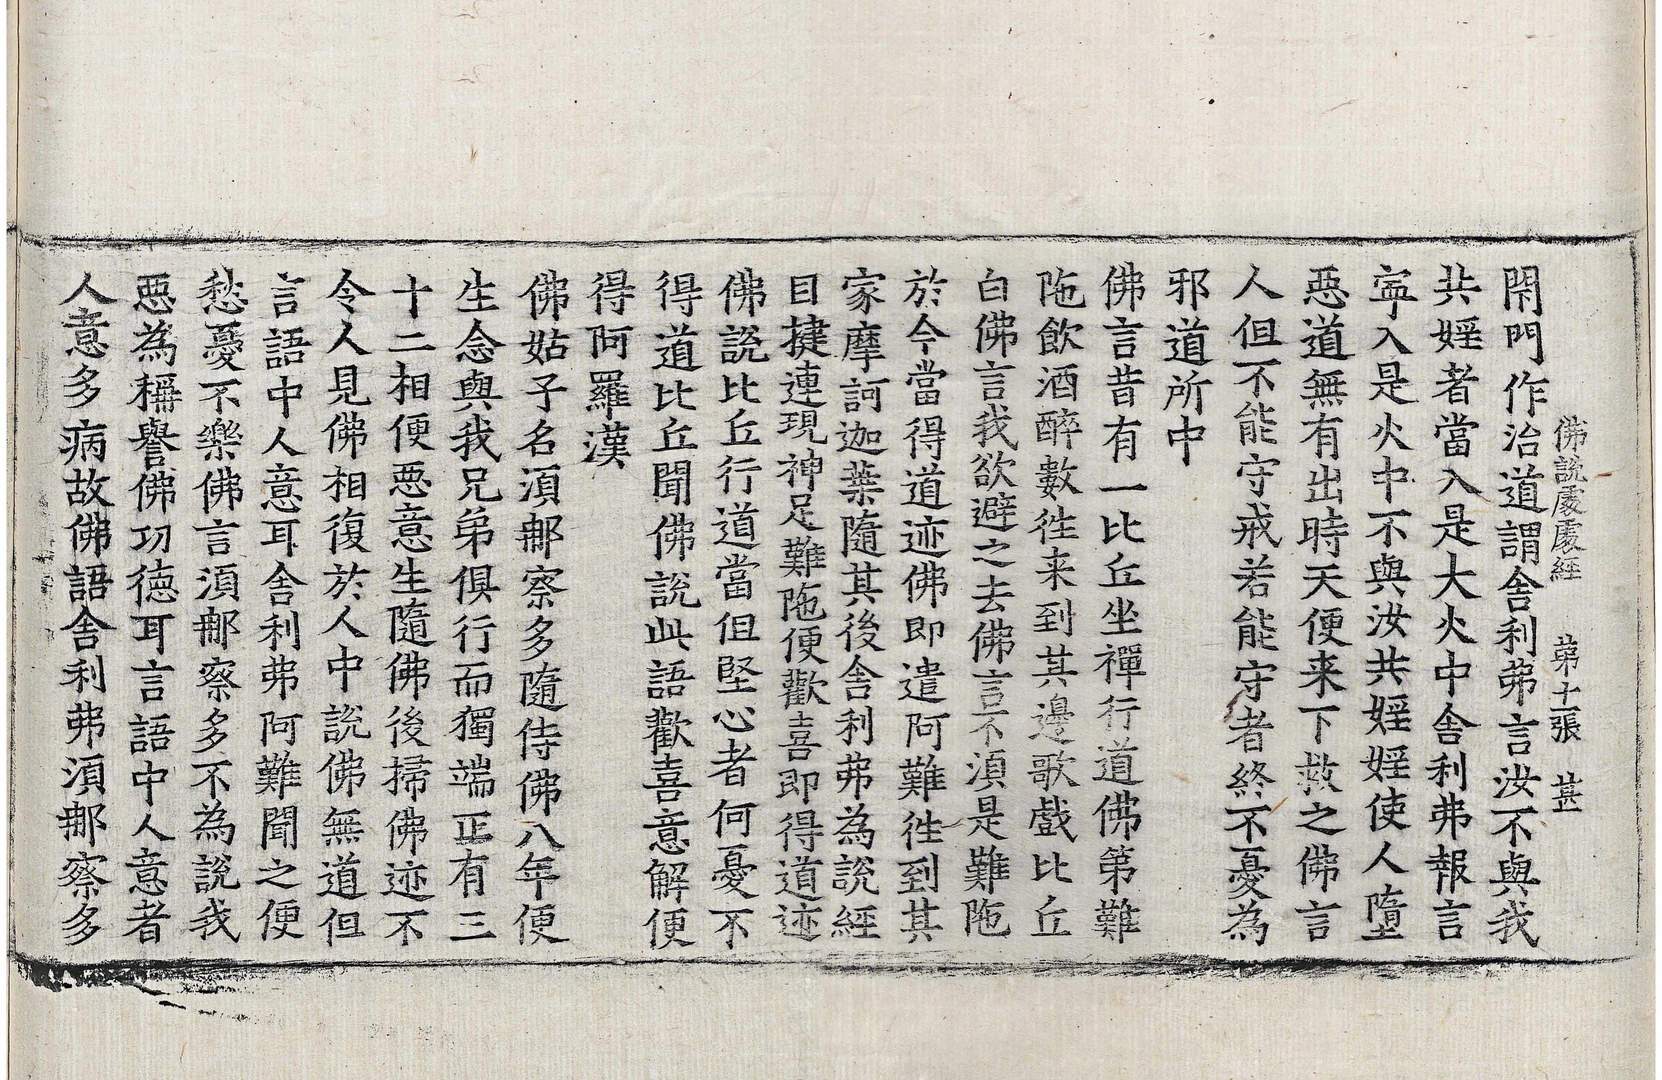 佛說處處經　第十一張　甚
閇門作治道謂舍利弗言汝不與我
共婬者當入是大火中舍利弗報言
寧入是火中不與汝共婬婬使人墮
惡道無有出時天便来下救之佛言
人但不能守戒若能守者終不憂為
邪道所中
佛言昔有一比丘坐禪行道佛第難
陁飲酒醉數徃来到其邊歌戲比丘
白佛言我欲避之去佛言不湏是難陁
於今當得道迹佛即遣阿難徃到其
家摩訶迦葉隨其後舍利弗為說經
目揵連現神足難陁便歡喜即得道迹
佛說比丘行道當但堅心者何憂不
得道比丘聞佛說此語歡喜意解便
得阿羅漢
佛姑子名湏郍察多隨侍佛八年便
生念與我兄弟俱行而獨端正有三
十二相便惡意生隨佛後掃佛迹不
令人見佛相復於人中說佛無道但
言語中人意耳舍利弗阿難聞之便
愁憂不樂佛言湏郍察多不為說我
惡為稱譽佛功德耳言語中人意者
人意多病故佛語舍利弗湏郍察多